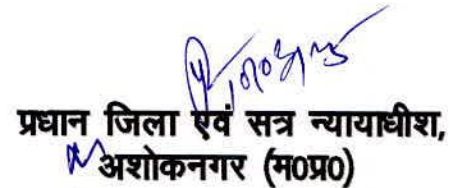 प्रधान जिला एवं सत्र न्यायाधीश,
अशोकनगर (म0प्र0)